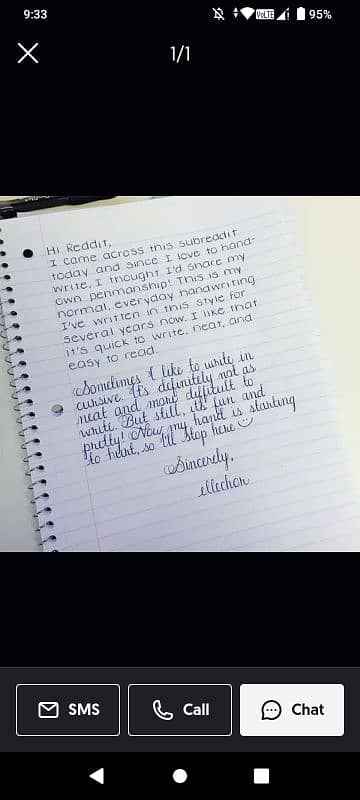 9:33
VoLTE
95%
1/1
Hi Reddit,
I came across this subreddit
today and since I love to hand-
write, I thought I'd share my
own penmanship! This is my
normal, everyday handwriting
I've written in this style for
several years now. I like that
it's quick to write, neat, and
easy to read.
Sometimes I like to write in
cursive. It's definitely not as
neat and more difficult to
write. But still, it's fun and
pretty! Now my hand is starting
to hurt, so I'll stop here
Sincerely,
SMS
Call
Chat